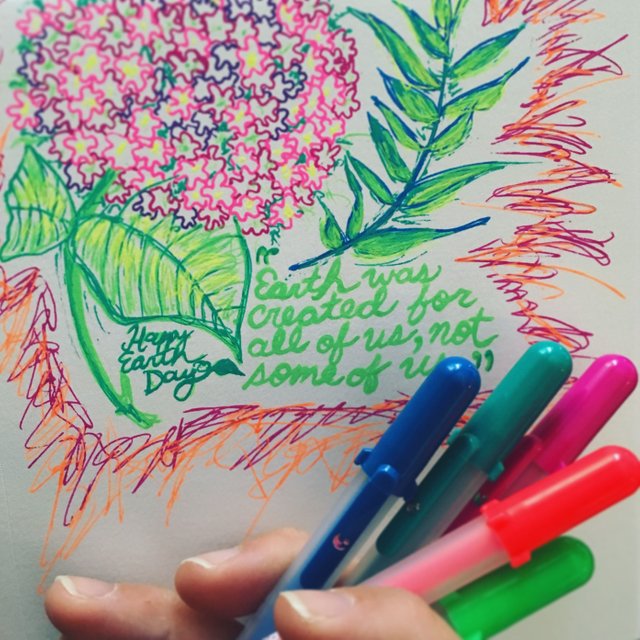 "Earth was
created for
all of us, not
some of us"
Happy
Earth
Day